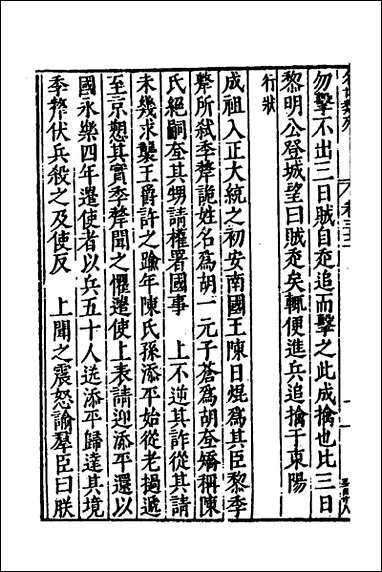 勿擊不出三日賊自走追而擊之此成擒也比三日
黎明公登城望曰賊走矣輒便進兵追擒于東陽
行狀
成祖入正大統之初安南國王陳日焜爲其臣黎季
犛所弑季犛詭姓名爲胡一元子蒼爲胡𡗨嬌稱陳
氏絕嗣𡗨其甥請權署國事　上不逆其詐從其請
未幾求襲王爵許之踰年陳氏孫添平始從老撾遞
至京愬其實季犛聞之懼遣使上表請迎添平還以
國永樂四年遣使者以兵五十人送添平歸達其境
季犛伏兵殺之及使反　上聞之震怒諭羣臣曰朕